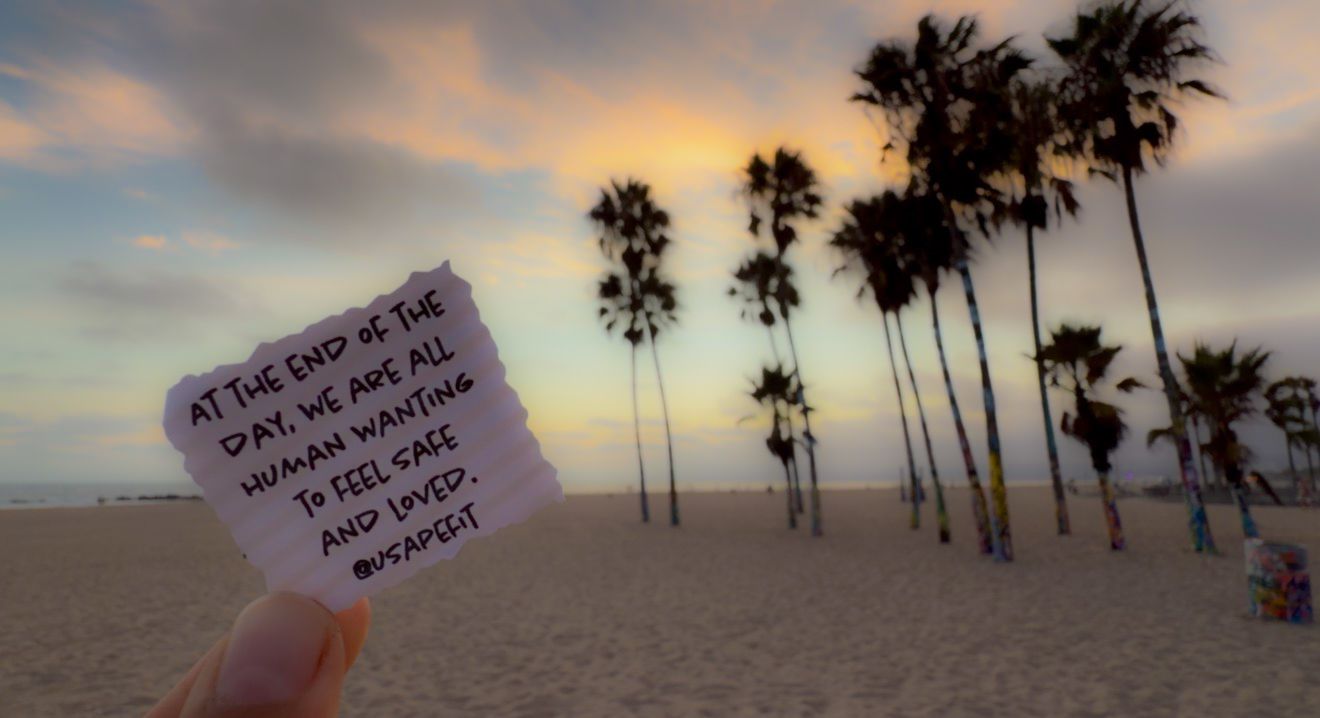 AT THE END OF THE
DAY, WE ARE ALL
HUMAN WANTING
TO FEEL SAFE
AND LOVED.
@USAPEFIT